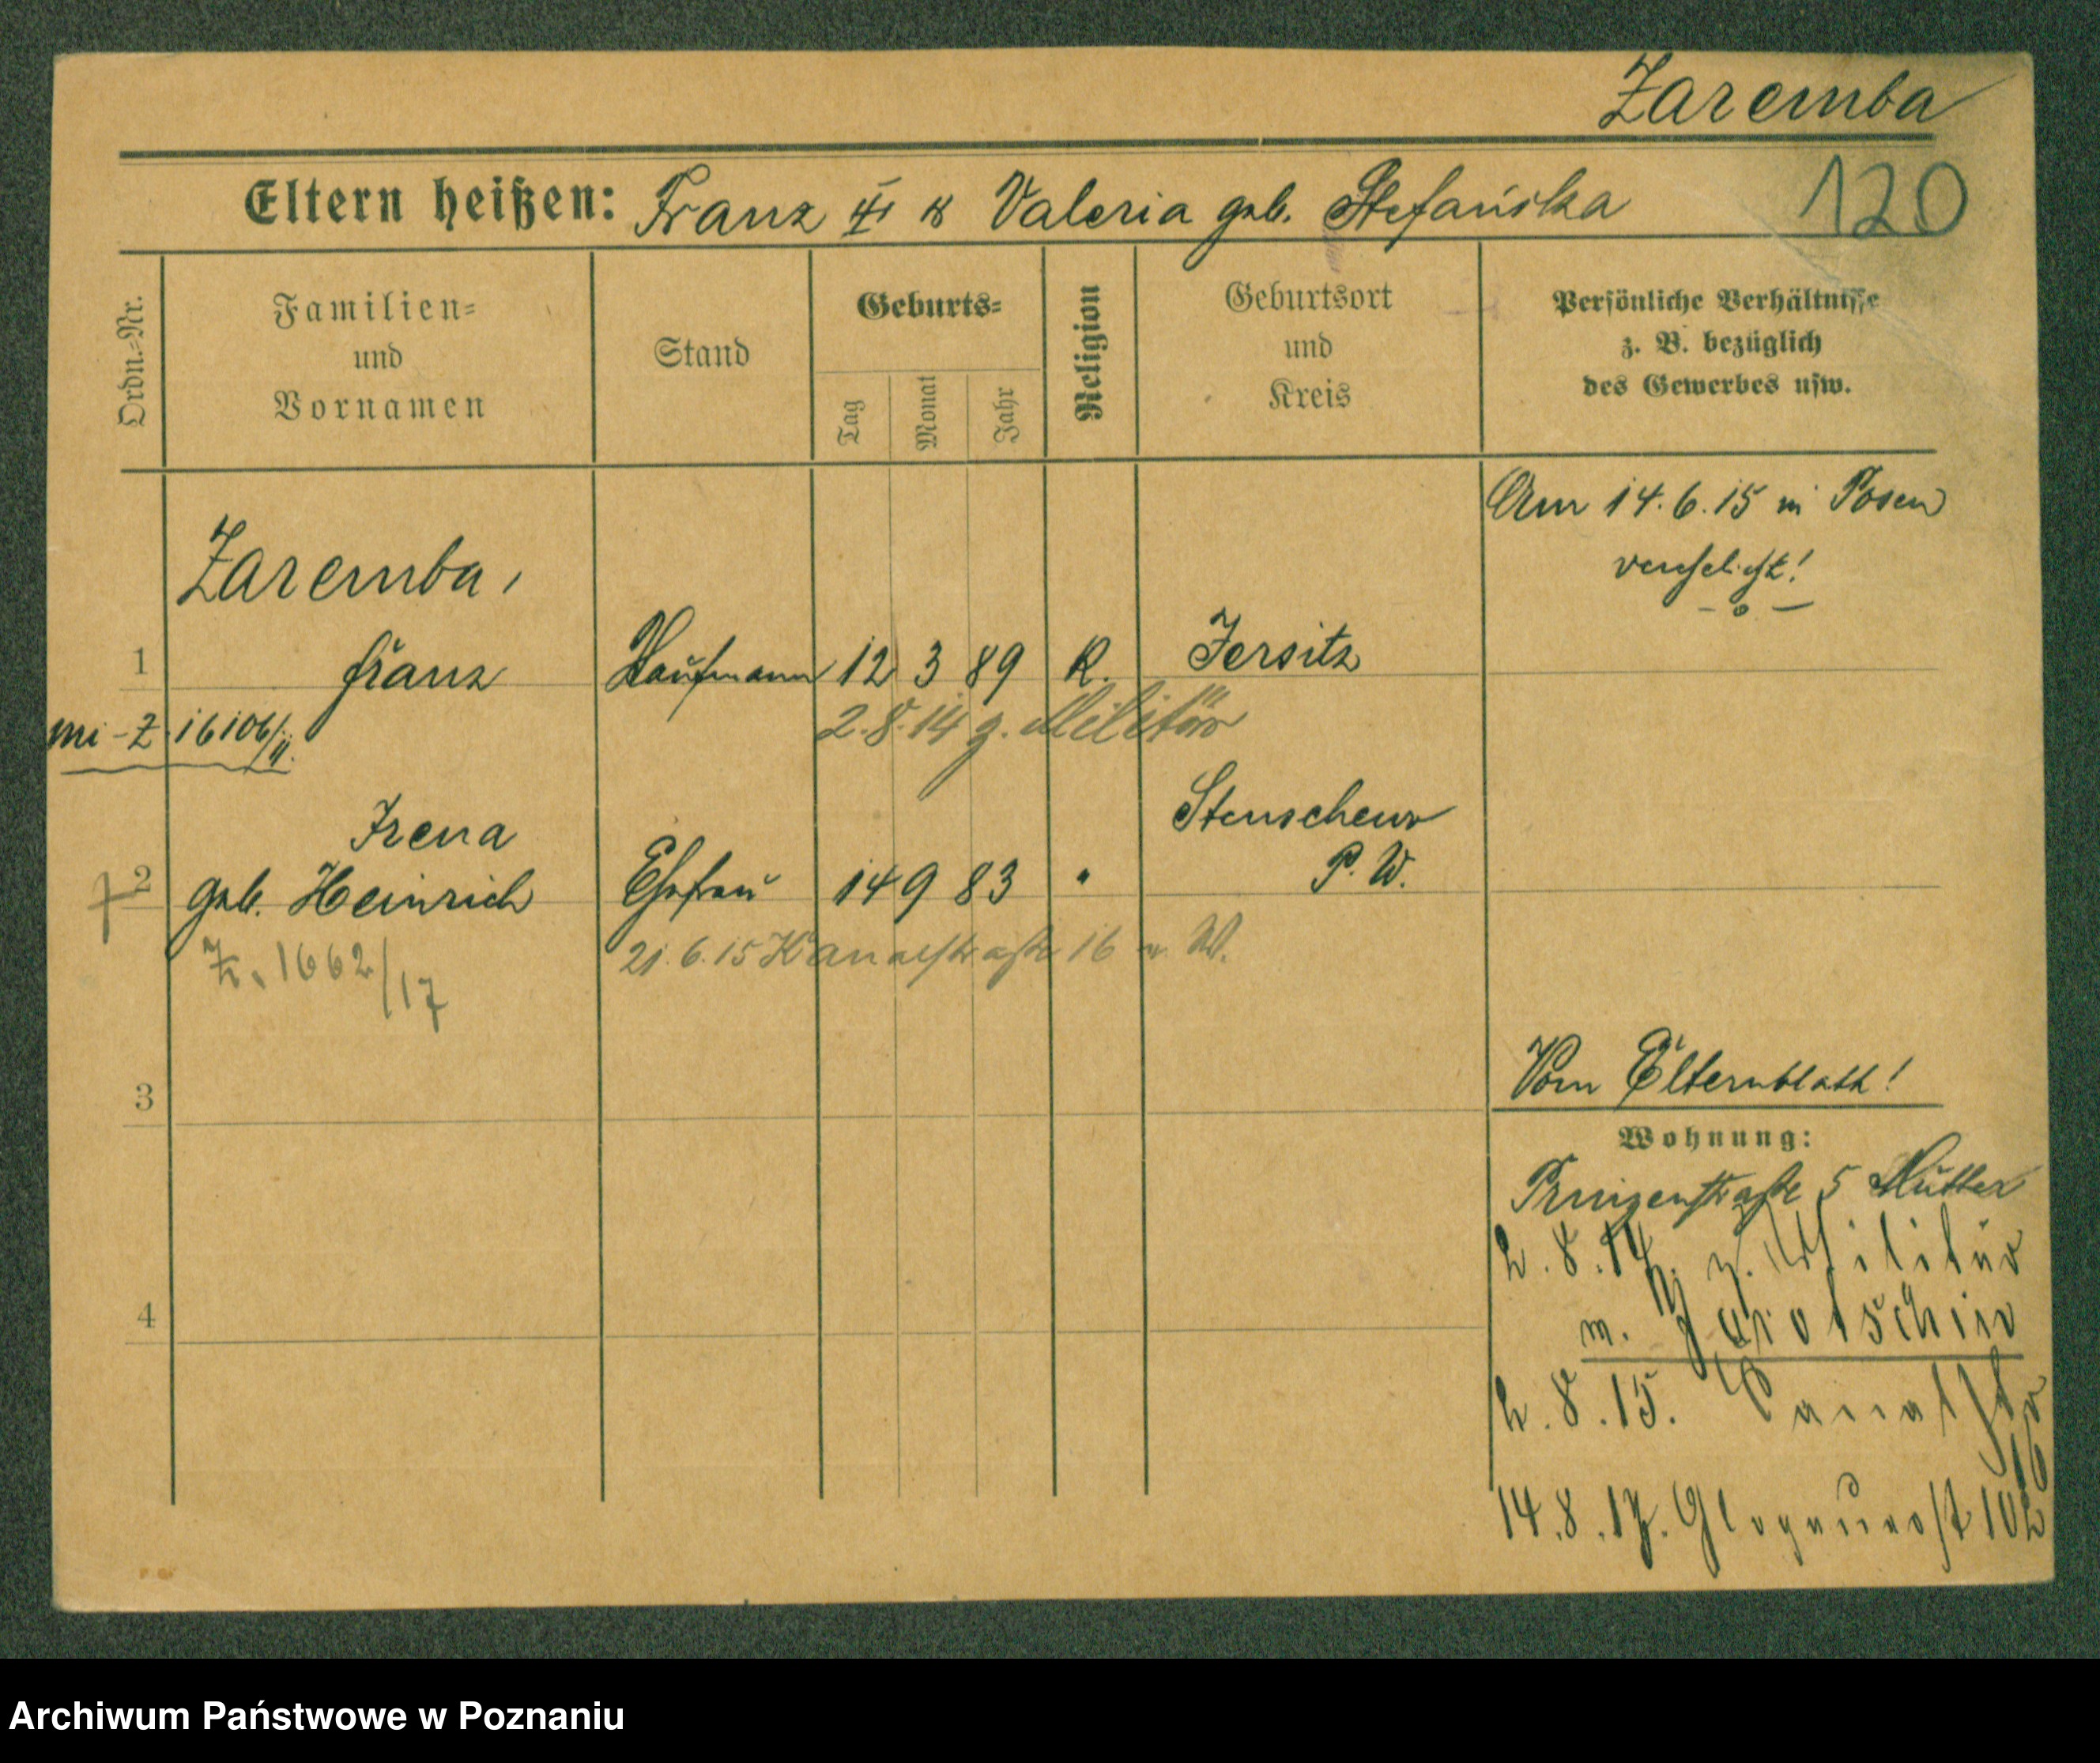 Zaremba
120
Eltern heißen: Franz III & Valeria geb. Stefańska
Ordn.-Nr.
Familien-
und
Vornamen
Stand
Geburts-
Tag
Monat
Jahr
Religion
Geburtsort
und
Kreis
Persönliche Verhältnisse
z. B. bezüglich
des Gewerbes usw.
Am 14.6.15 in Posen
verehelicht!
Zaremba,
1 Franz Kaufmann 12 3 89 K. Jersitz
mi-Z 16106/11.
2.8.14 z. Militär
Irena
Stenschewo
2 geb. Heinrich Ehefrau 14 9 83 " P. W.
Z. 1662/17
21.6.15 Kanalstraße 16 W.
Vom Elternblatt!
3
Wohnung:
Prinzenstraße 5 Mutter
2.8.14. z. Militär
n. Jarotschin
2.8.15. Canalstr
16
4
14.8.17. Glogauerst 102
Archiwum Państwowe w Poznaniu